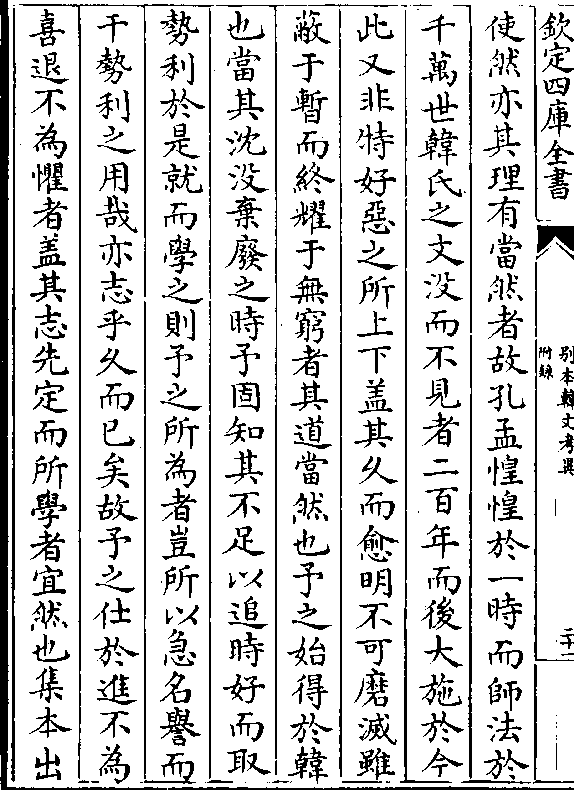 欽定四庫全書
別本韓文考異
附錄
二十一
使然亦其理有當然者故孔孟惶惶於一時而師法於
千萬世韓氏之文没而不見者二百年而後大施於今
此又非特好惡之所上下盖其久而愈明不可磨滅雖
蔽于暫而終耀于無窮者其道當然也予之始得於韓
也當其沈没棄廢之時予固知其不足以追時好而取
勢利於是就而學之則予之所為者豈所以急名譽而
干勢利之用哉亦志乎久而已矣故予之仕於進不為
喜退不為懼者盖其志先定而所學者宜然也集本出